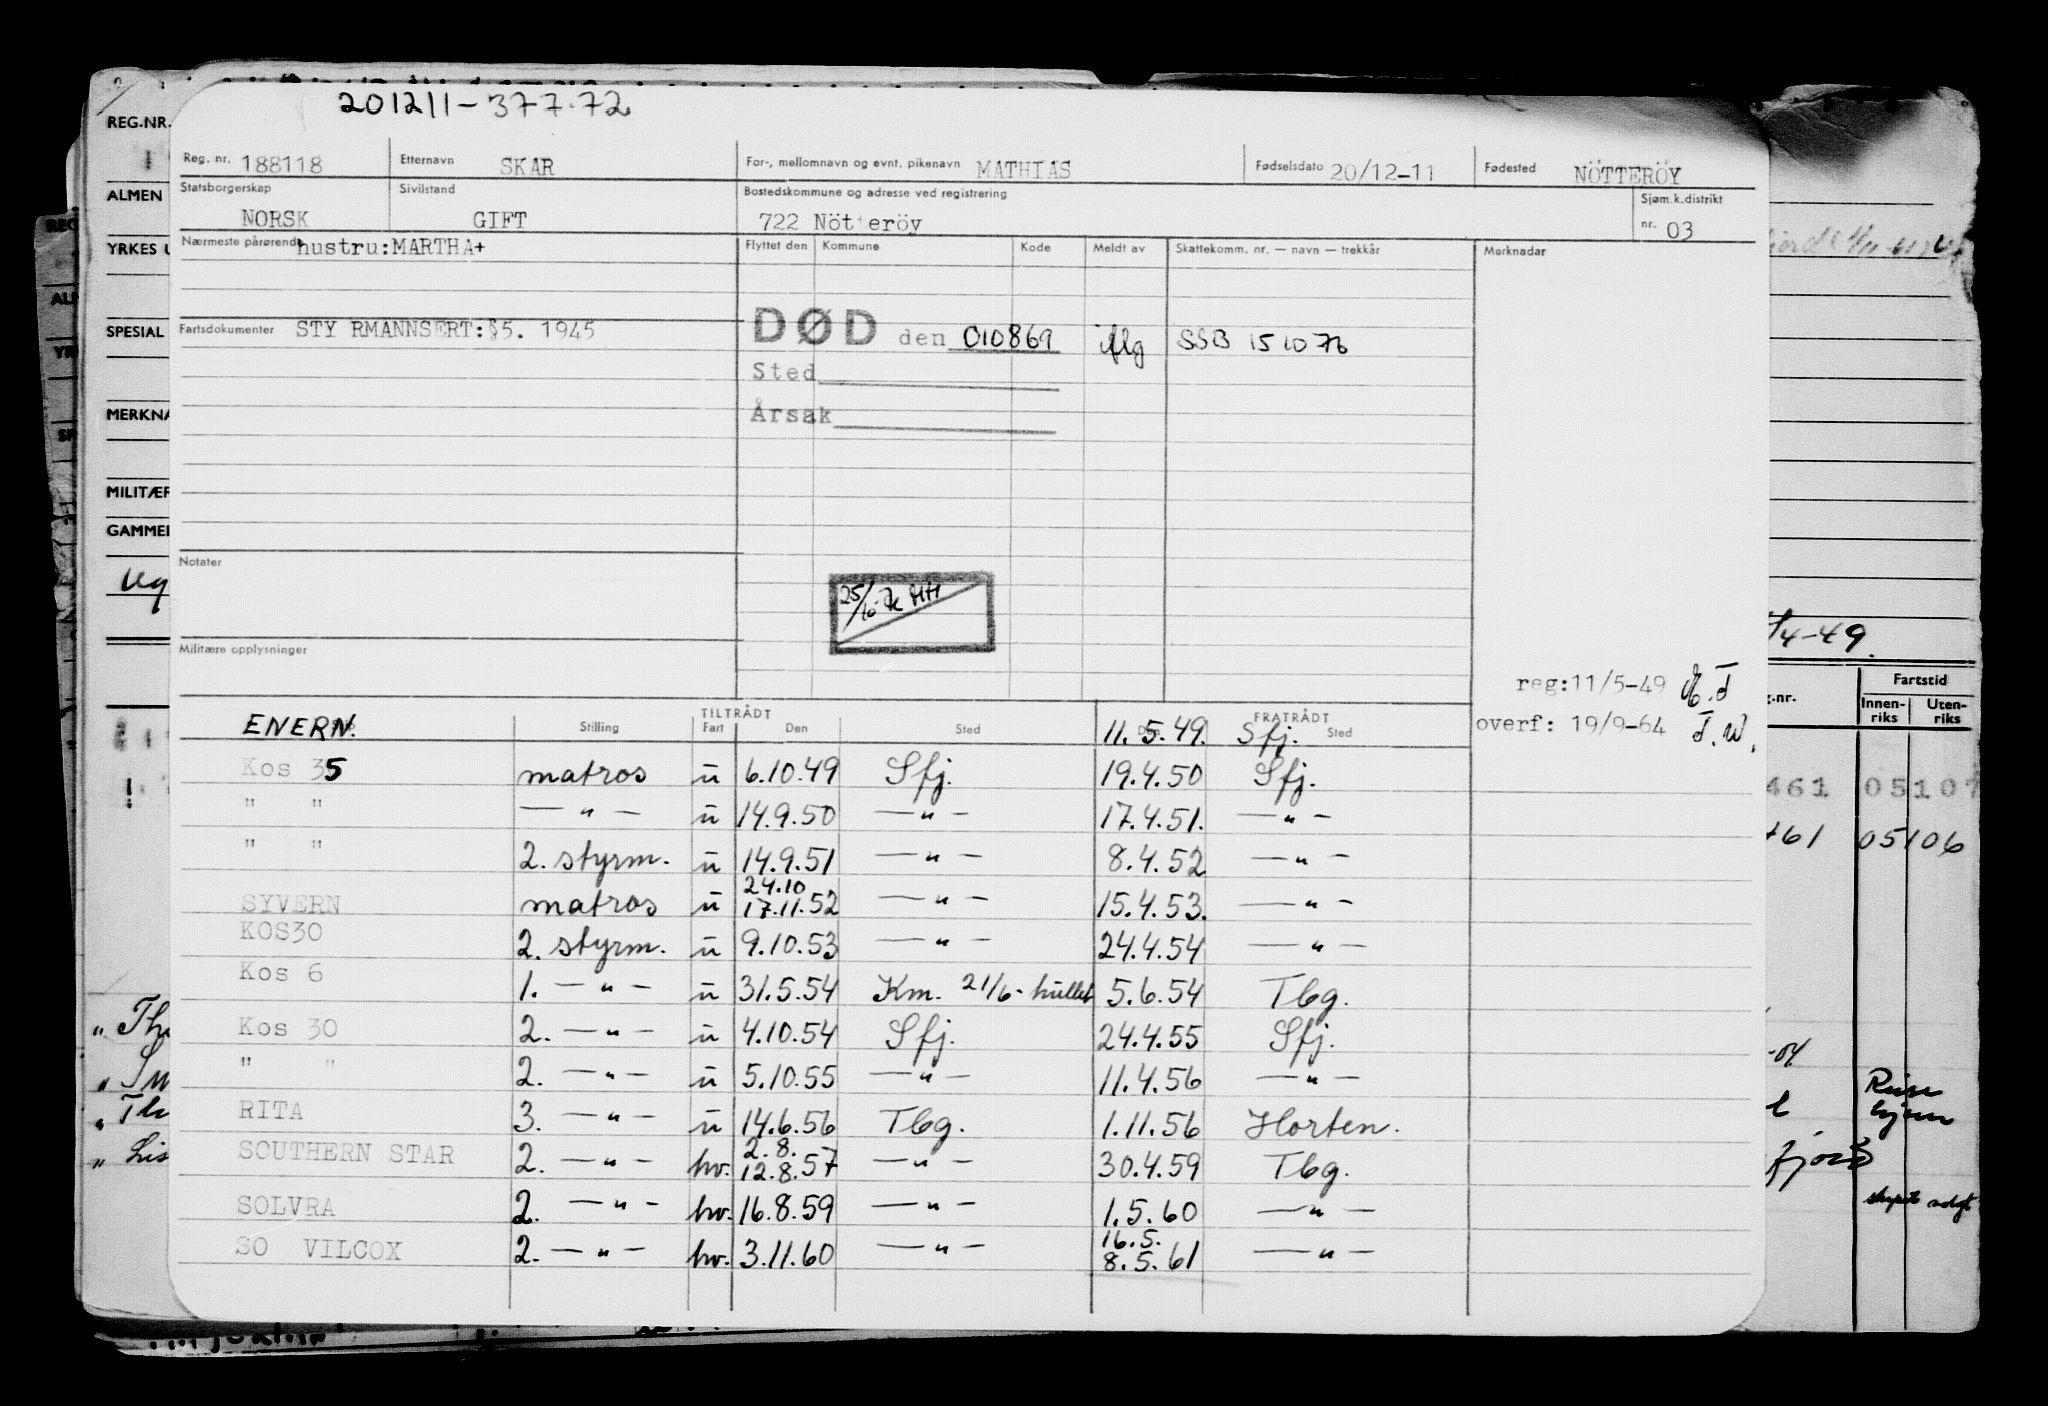 201211-377.72
Reg. nr. 188118 Etternavn SKAR For-, mellomnavn og evnt. pikenavn MATHIAS Fødselsdato 20/12-11 Fødested NÖTTERÖY
Statsborgerskap NORSK Sivilstand GIFT Bostedskommune og adresse ved registrering 722 Nötteröy Sjøm.k.distrikt nr. 03
Nærmeste pårørende hustru:MARTHA+ Flyttet den Kommune Kode Meldt av Skattekomm. nr. — navn — trekkår Merknader
Fartsdokumenter STY RMANNSERT:§5. 1945 DØD den 010869 iflg SSB 151076
Sted
Årsak
Notater
25/10-76 HH
Militære opplysninger
reg:11/5-49
overf: 19/9-64 T.W.
TILTRÅDT FRATRÅDT
Stilling Fart Den Sted Sted
ENERN. 11.5.49. Sfj.
Kos 35 matros u 6.10.49 Sfj. 19.4.50 Sfj.
" " — " — u 14.9.50 — " — 17.4.51. — " —
" " 2. styrm. u 14.9.51 — " — 8.4.52 — " —
24.10
SYVERN matros u 17.11.52 — " — 15.4.53. — " —
KOS30 2. styrm. u 9.10.53 — " — 24.4.54 — " —
Kos 6 1. — " — u 31.5.54 Km. 21/6- 5.6.54 Tbg.
Kos 30 2. — " — u 4.10.54 Sfj. 24.4.55 Sfj.
" " 2. — " — u 5.10.55 — " — 11.4.56 — " —
RITA 3. — " — u 14.6.56 Tbg. 1.11.56 Horten.
2.8.
SOUTHERN STAR 2. — " — hv. 12.8.57 — " — 30.4.59 Tbg.
SOLVRA 2. — " — hv. 16.8.59 — " — 1.5.60 — " —
16.5.
SO VILCOX 2. — " — hv. 3.11.60 — " — 8.5.61 — " —
REG.NR.
ALMEN
YRKES U
SPESIAL
MERKNA
MILITÆR
GAMMEL
4-49.
Fartstid
g.nr. Innen-riks Uten-riks
461 05107
461 05106